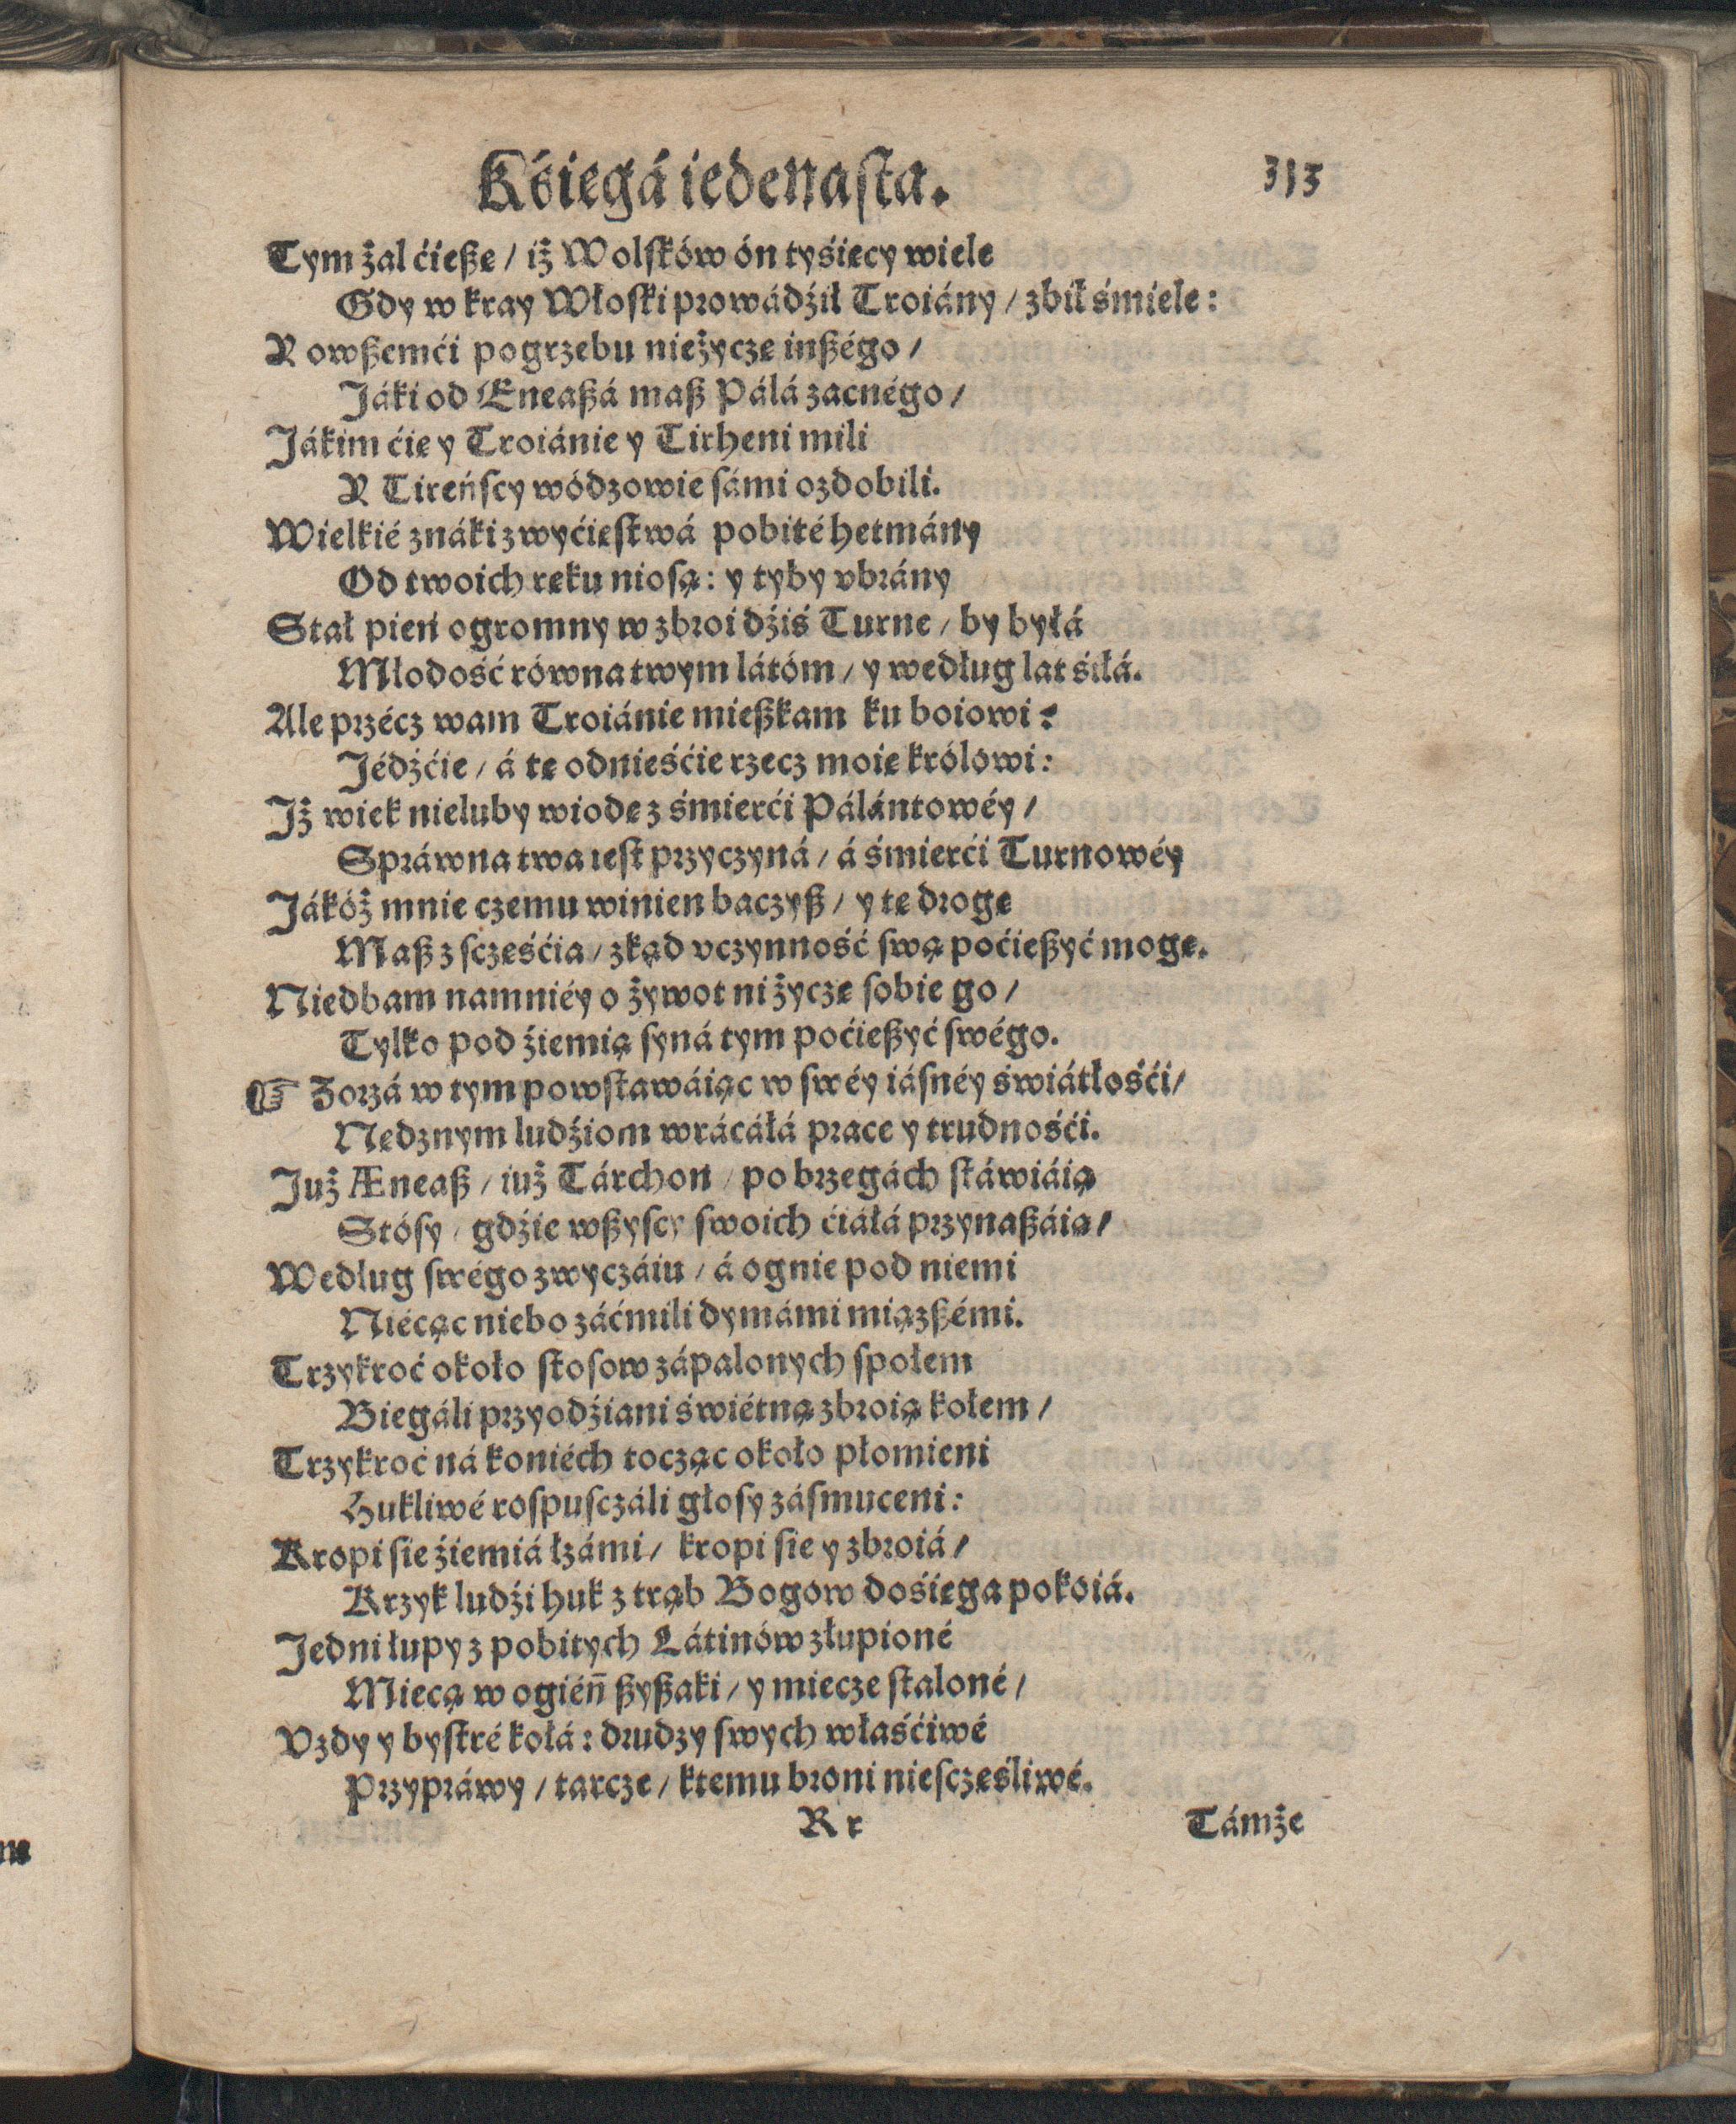 Kśięgá iedenasta. 313
Tym żal ćieszę / iż Wolsków ón tyśięcy wiele
Gdy w kray Włoski prowádźił Troiány / zbił śmiele:
Y owszemći pogrzebu nieżyczę inszégo /
Jáki od Eneaszá masz Pálá zacnégo /
Jákim ćię y Troiánie y Tirheni mili
Y Tireńscy wódzowie sámi ozdobili.
Wielkié znáki zwyćięstwá pobité hetmány
Od twoich ręku niosą: y tyby vbrány
Stał pień ogromny w zbroi dźiś Turne / by byłá
Młodość równa twym látóm / y według lat śiłá.
Ale przécz wam Troiánie mieszkam ku boiowi?
Jédźćie / á tę odnieśćie rzecz moię królowi:
Jż wiek nieluby wiodę z śmierći Pálántowéy /
Spráwna twa iest przyczyná / á śmierći Turnowéy
Jákóż mnie czemu winien baczysz / y tę drogę
Masz z sczęśćia / zkąd vczynność swą poćieszyć mogę.
Niedbam namniéy o żywot ni życzę sobie go /
Tylko pod źiemią syná tym poćieszyć swégo.
☞ Zorzá w tym powstawáiąc w swéy iásnéy świátłośći /
Nędznym ludźiom wrácáłá prace y trudnośći.
Już Æneasz / iuż Tárchon / po brzegách stáwiáią
Stósy / gdźie wszyscy swoich ćiáłá przynaszáią /
Według swégo zwyczáiu / á ognie pod niemi
Niécąc niebo záćmili dymámi miązszémi.
Trzykroć około stosow zápalonych społem
Biegáli przyodźiani świétną zbroią kołem /
Trzykroć ná koniéch tocząc około płomieni
Hukliwé rospusczáli głosy zásmuceni:
Kropi się źiemiá łzámi / kropi się y zbroiá /
Krzyk ludźi huk z trąb Bogow dośięga pokoiá.
Jedni łupy z pobitych Látinów złupioné
Miecą w ogién̄ szyszaki / y miecze staloné /
Vzdy y bystré kołá: drudzy swych właśćiwé
Przypráwy / tarcze / ktemu broni niesczęśliwé.
Rr Támże